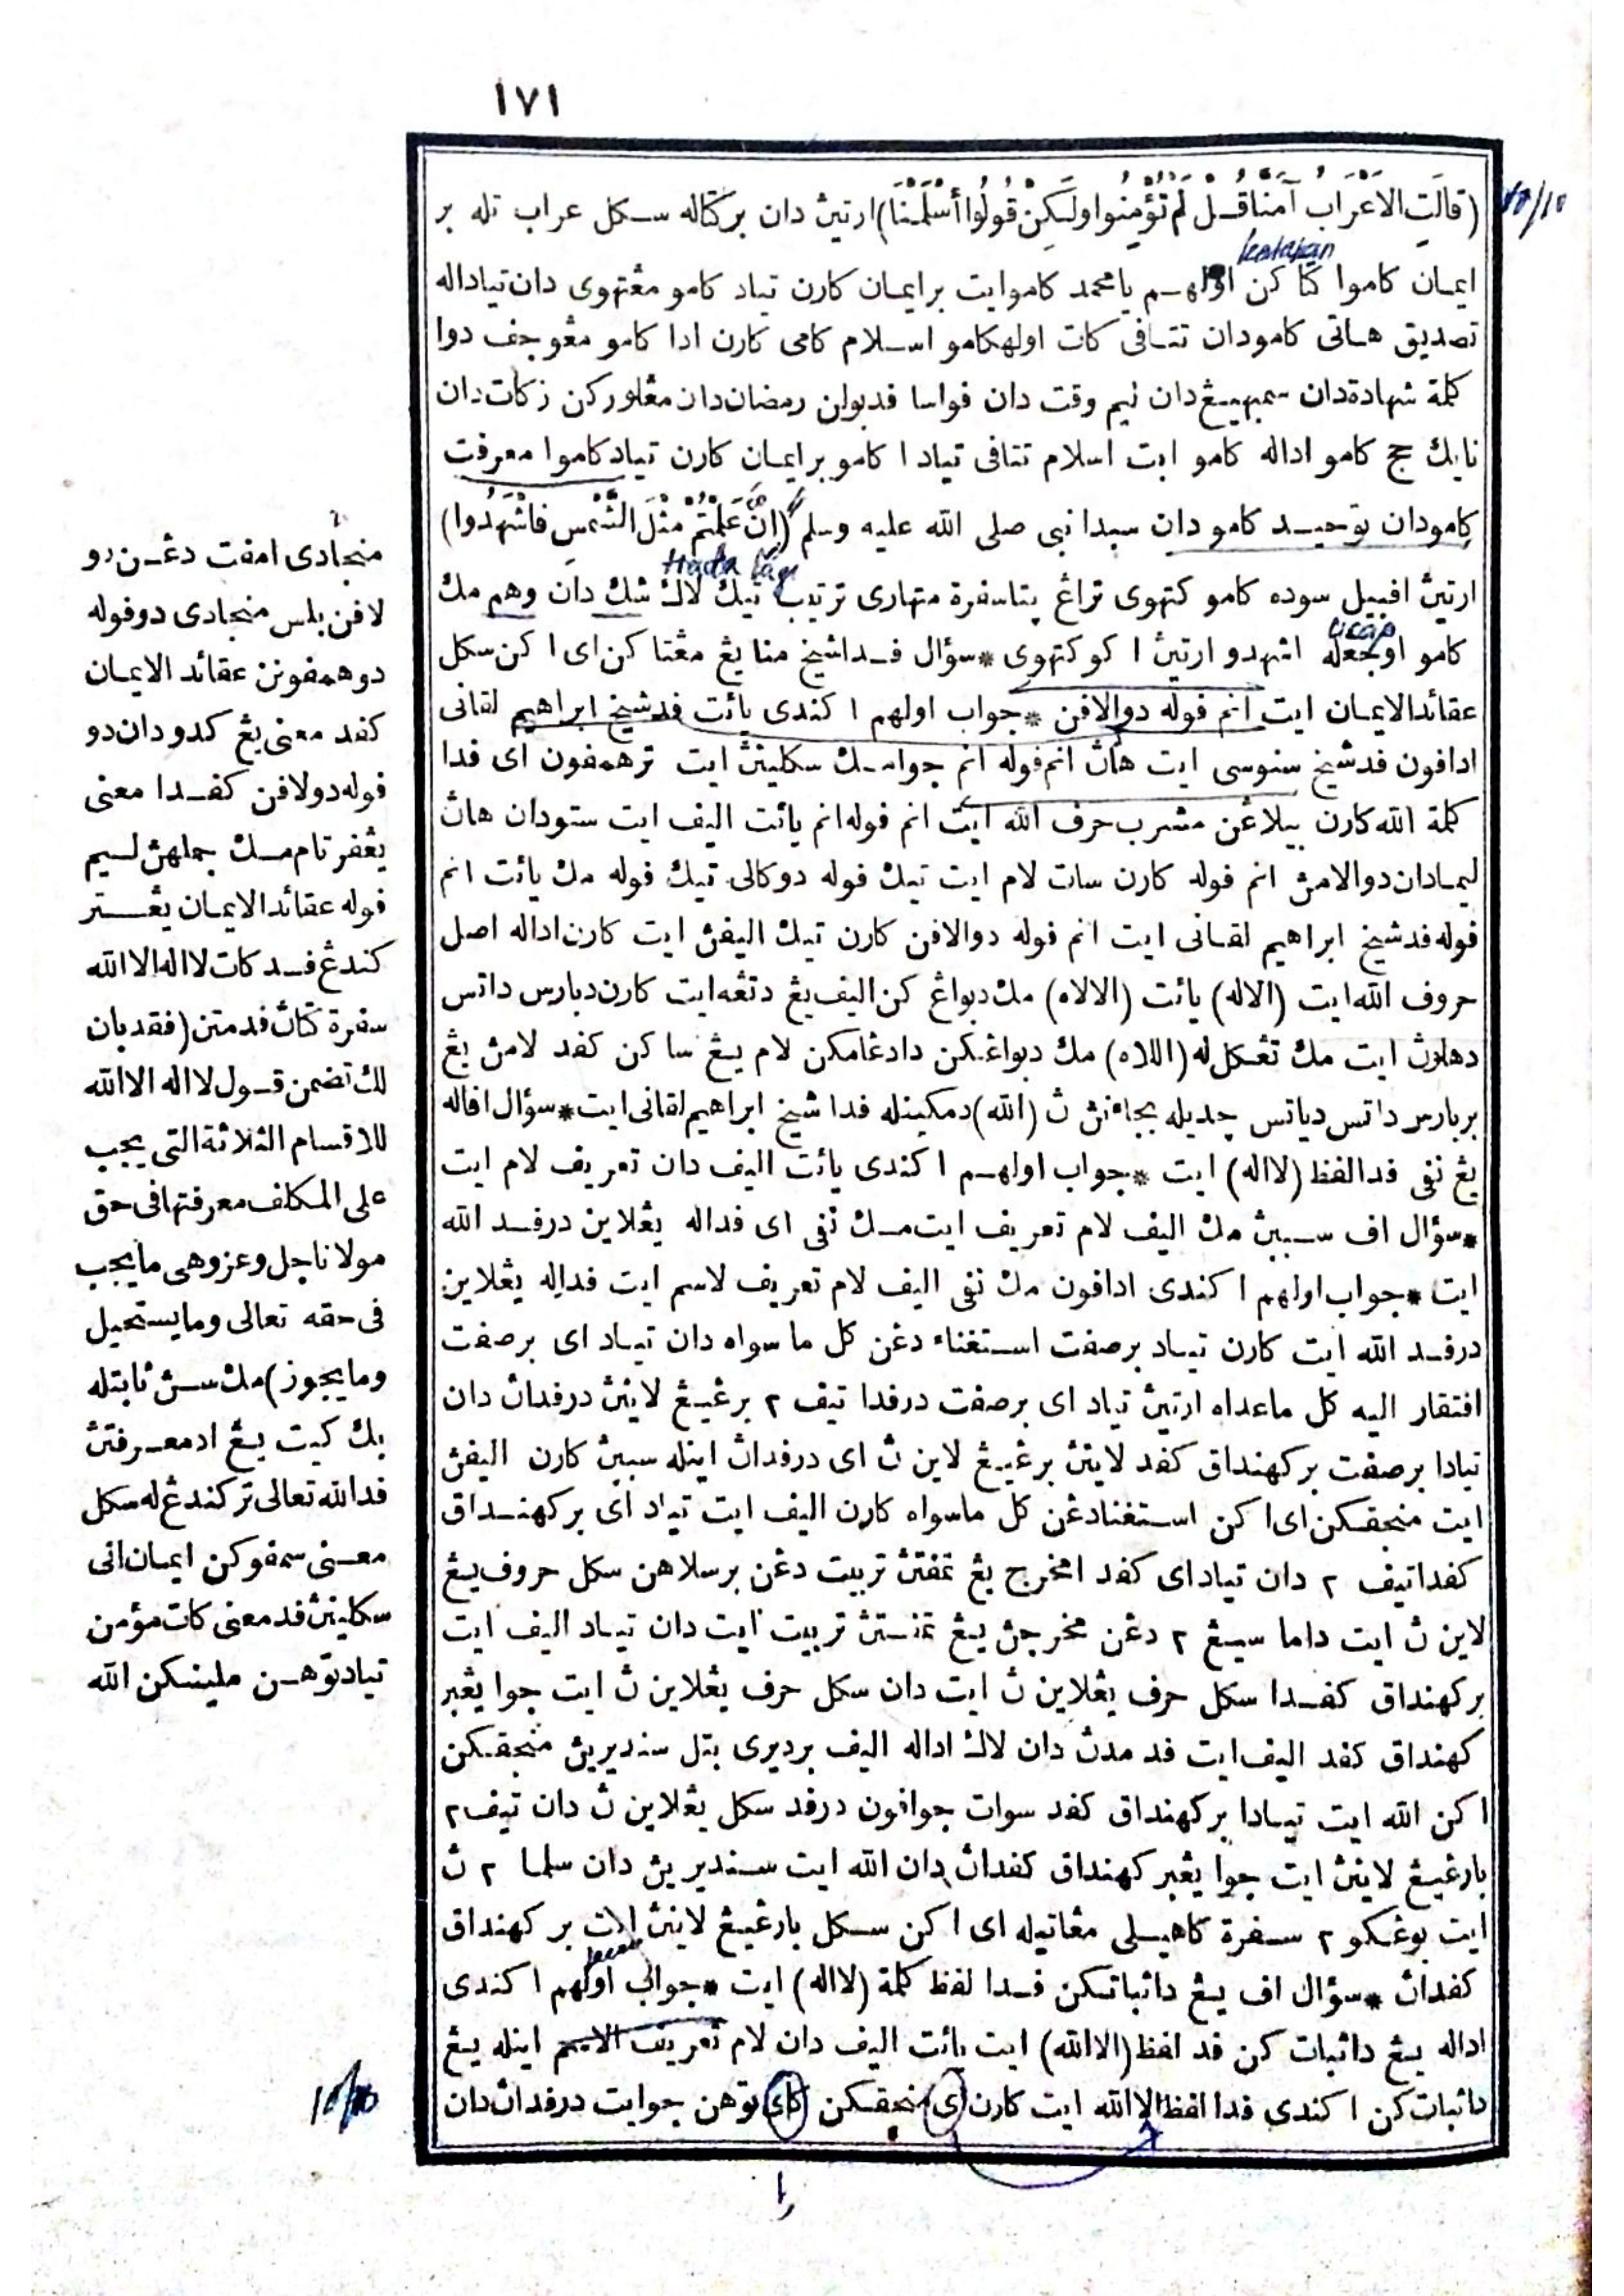 ١٧١
(قَالَتِ الْأَعْرَابُ آمَنَّا قُلْ لَمْ تُؤْمِنُوا وَلَكِنْ قُولُوا أَسْلَمْنَا) ارتيڽ دان بركتاله سكل عراب تله بر
ايمان كاموا كتاكن اولهم يا محمد كامو ايت برايمان كارن تياد كامو مڠتهوى دان تياداله
تصديق هاتى كامو دان تتافى كات اولهكامو اسلام كامى كارن ادا كامو مڠوجف دوا
كلمة شهادة دان سمبهيڠ دان ليم وقت دان فواسا فد بولن رمضان دان مڠلوركن زكات دان
نايك حج كامو اداله كامو ايت اسلام تتافى تيادا كامو برايمان كارن تياد كاموا معرفت
كامو دان توحيد كامو دان سبدا نبى صلى الله عليه وسلم (إِنْ عَلِمْتُمْ مِثْلَ الشَّمْسِ فَاشْهَدُوا)
ارتيڽ افبيل سوده كامو كتهوى تراڠ پتا سفرة متهارى تربيت تيك لاك شك دان وهم مك
كامو اوجفله اشهدو ارتيڽ اكو كتهوى * سؤال فدا شيخ منا يڠ مڠتاكن اى اكن سكل
عقائد الايمان ايت انم فوله دوالافن * جواب اولهم اكندى يائت فد شيخ ابراهيم لقانى
ادافون فد شيخ سنوسى ايت هاڽ انم فوله انم جوا مك سكلينڽ ايت ترهمفون اى فدا
كلمة الله كارن بيلاڠن مشرب حرف الله ايت انم فوله انم يائت اليف ايت ستو دان هاڽ
ليما دان دوالامڽ انم فوله كارن سات لام ايت تيك فوله دوكالى تيك فوله مك يائت انم
فوله فد شيخ ابراهيم لقانى ايت انم فوله دوالافن كارن تيك اليفڽ ايت كارن اداله اصل
حروف الله ايت (الاله) يائت (الالاه) مك دبواڠ كن اليف يڠ دتڠه ايت كارن دبارس داتس
دهلوڽ ايت مك تڠكل له (اللاه) مك دبواڠكن دادغامكن لام يڠ ساكن كفد لامڽ يڠ
بربارس داتس دياتس جديله بجاءنڽ ڽ (الله) دمكينله فدا شيخ ابراهيم لقانى ايت * سؤال افاله
يڠ نفى فدا لفظ (لااله) ايت * جواب اولهم اكندى يائت اليف دان تعريف لام ايت
* سؤال اف سببڽ مك اليف لام تعريف ايت مك نفى اى فداله يڠلاين درفد الله
ايت * جواب اولهم اكندى ادافون مك نفى اليف لام تعريف لاسم ايت فداله يڠلاين
درفد الله ايت كارن تياد برصفت استغناء دغن كل ما سواه دان تياد اى برصفت
افتقار اليه كل ماعداه ارتيڽ تياد اى برصفت درفدا تيف ٢ برڠيڠ لاينڽ درفداڽ دان
تيادا برصفت بركهنداق كفد لاينڽ برڠيڠ لاين ڽ اى درفداڽ اينله سببڽ كارن اليفڽ
ايت منجقكن اى اكن استغنا دغن كل ماسواه كارن اليف ايت تياد اى بركهنداق
كفدا تيف ٢ دان تياد اى كفد امخرج يڠ تمفتڽ تربيت دغن برسلاهن سكل حروف يڠ
لاين ڽ ايت داما سيڠ ٢ دغن مخرجڽ يڠ تمفتڽ تربيت ايت دان تياد اليف ايت
بركهنداق كفدا سكل حرف يڠلاين ڽ ايت دان سكل حرف يڠلاين ڽ ايت جوا يڠبر
كهنداق كفد اليف ايت فد مدڽ دان لاك اداله اليف برديرى بتل سنديريڽ منجقكن
اكن الله ايت تيادا بركهنداق كفد سوات جوافون درفد سكل يڠلاين ڽ دان تيف ٢
بارڠيڠ لاينڽ ايت جوا يڠبر كهنداق كفداڽ دان الله ايت سنديريڽ دان سلما ٢ ڽ
ايت بوڠكو ٢ سفرة كاهيلى مڠاتيله اى اكن سكل بارڠيڠ لاينڽ ايت بر كهنداق
كفداڽ * سؤال اف يڠ داثباتكن فدا لفظ كلمة (لااله) ايت * جواب اولهم اكندى
اداله يڠ داثبات كن فد لفظ (الاالله) ايت يائت اليف دان لام تعريف الاسم اينله يڠ
داثبات كن اكندى فدا لفظ الاالله ايت كارن اى منجقكن كاى توهن جوايت درفداڽ دان
منجادى امفت دغن دو
لافن بلس منجادى دوفوله
دو همفونن عقائد الايمان
كفد معنى يڠ كدو دان دو
فوله دولافن كفدا معنى
يڠفرتام مك جملهڽ لـيم
فوله عقائد الايمان يڠستر
كندڠ فد كات لااله الاالله
سفرة كتاڽ فد متن (فقد بان
لك تضمن قول لااله الاالله
للاقسام الثلاثة التى يجب
على المكلف معرفتها فى حق
مولانا جل وعز وهى مايجب
فى حقه تعالى ومايستحيل
ومايجوز) مك سـڽ ثابتله
بك كيت يڠ اد معرفتڽ
فد الله تعالى تركندڠ له سكل
معنى سمفوكن ايمان انى
سكلينڽ فد معنى كات مؤمن
تياد توهن ملينكن الله
katakan
tiada lagi
ucap